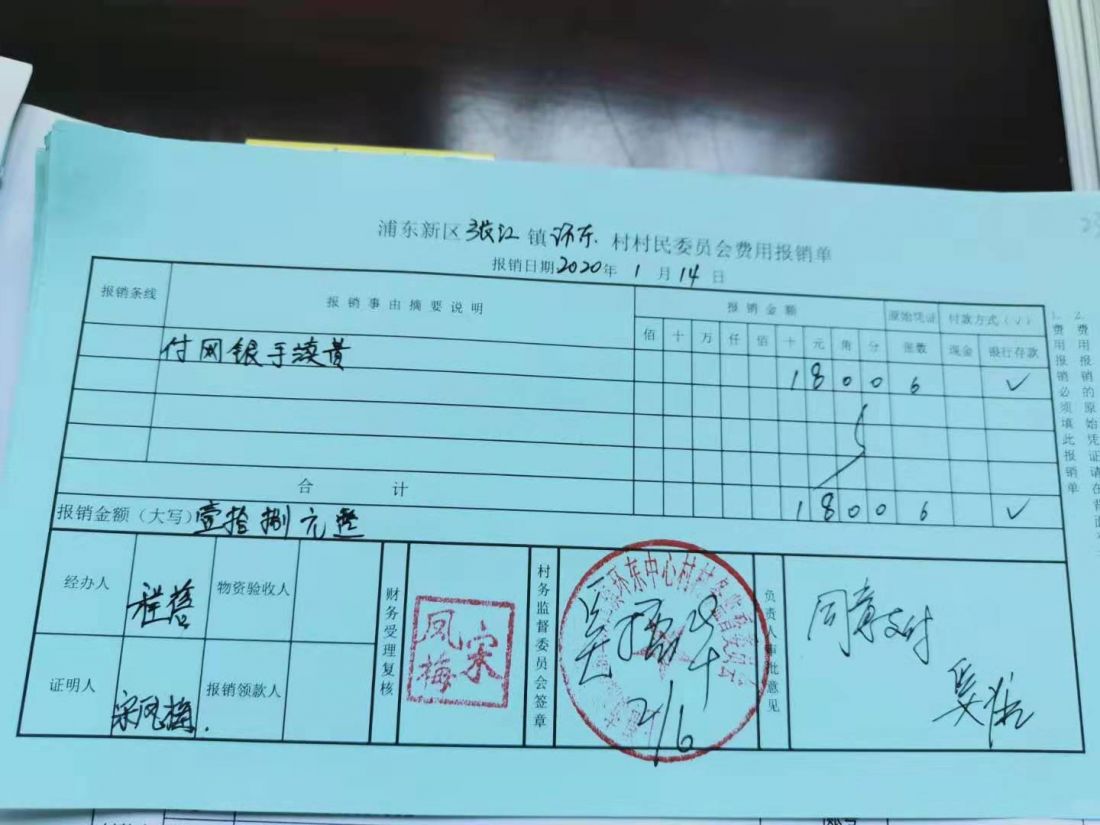 浦东新区张江镇环东村村民委员会费用报销单
报销日期2020年1月14日
报销条线 报销事由摘要说明 报销金额 原始凭证 付款方式(√)
佰 十 万 仟 佰 十 元 角 分 张数 现金 银行存款
付网银手续费 1 8 0 0 6 √
合计 1 8 0 0 6 √
报销金额(大写)壹拾捌元整
经办人 程蓓 物资验收人
证明人 宋凤梅 报销领款人
财务受理复核
宋凤梅
村务监督委员会签章
环东中心村村务监督委员会
负责人审批意见
同意支付